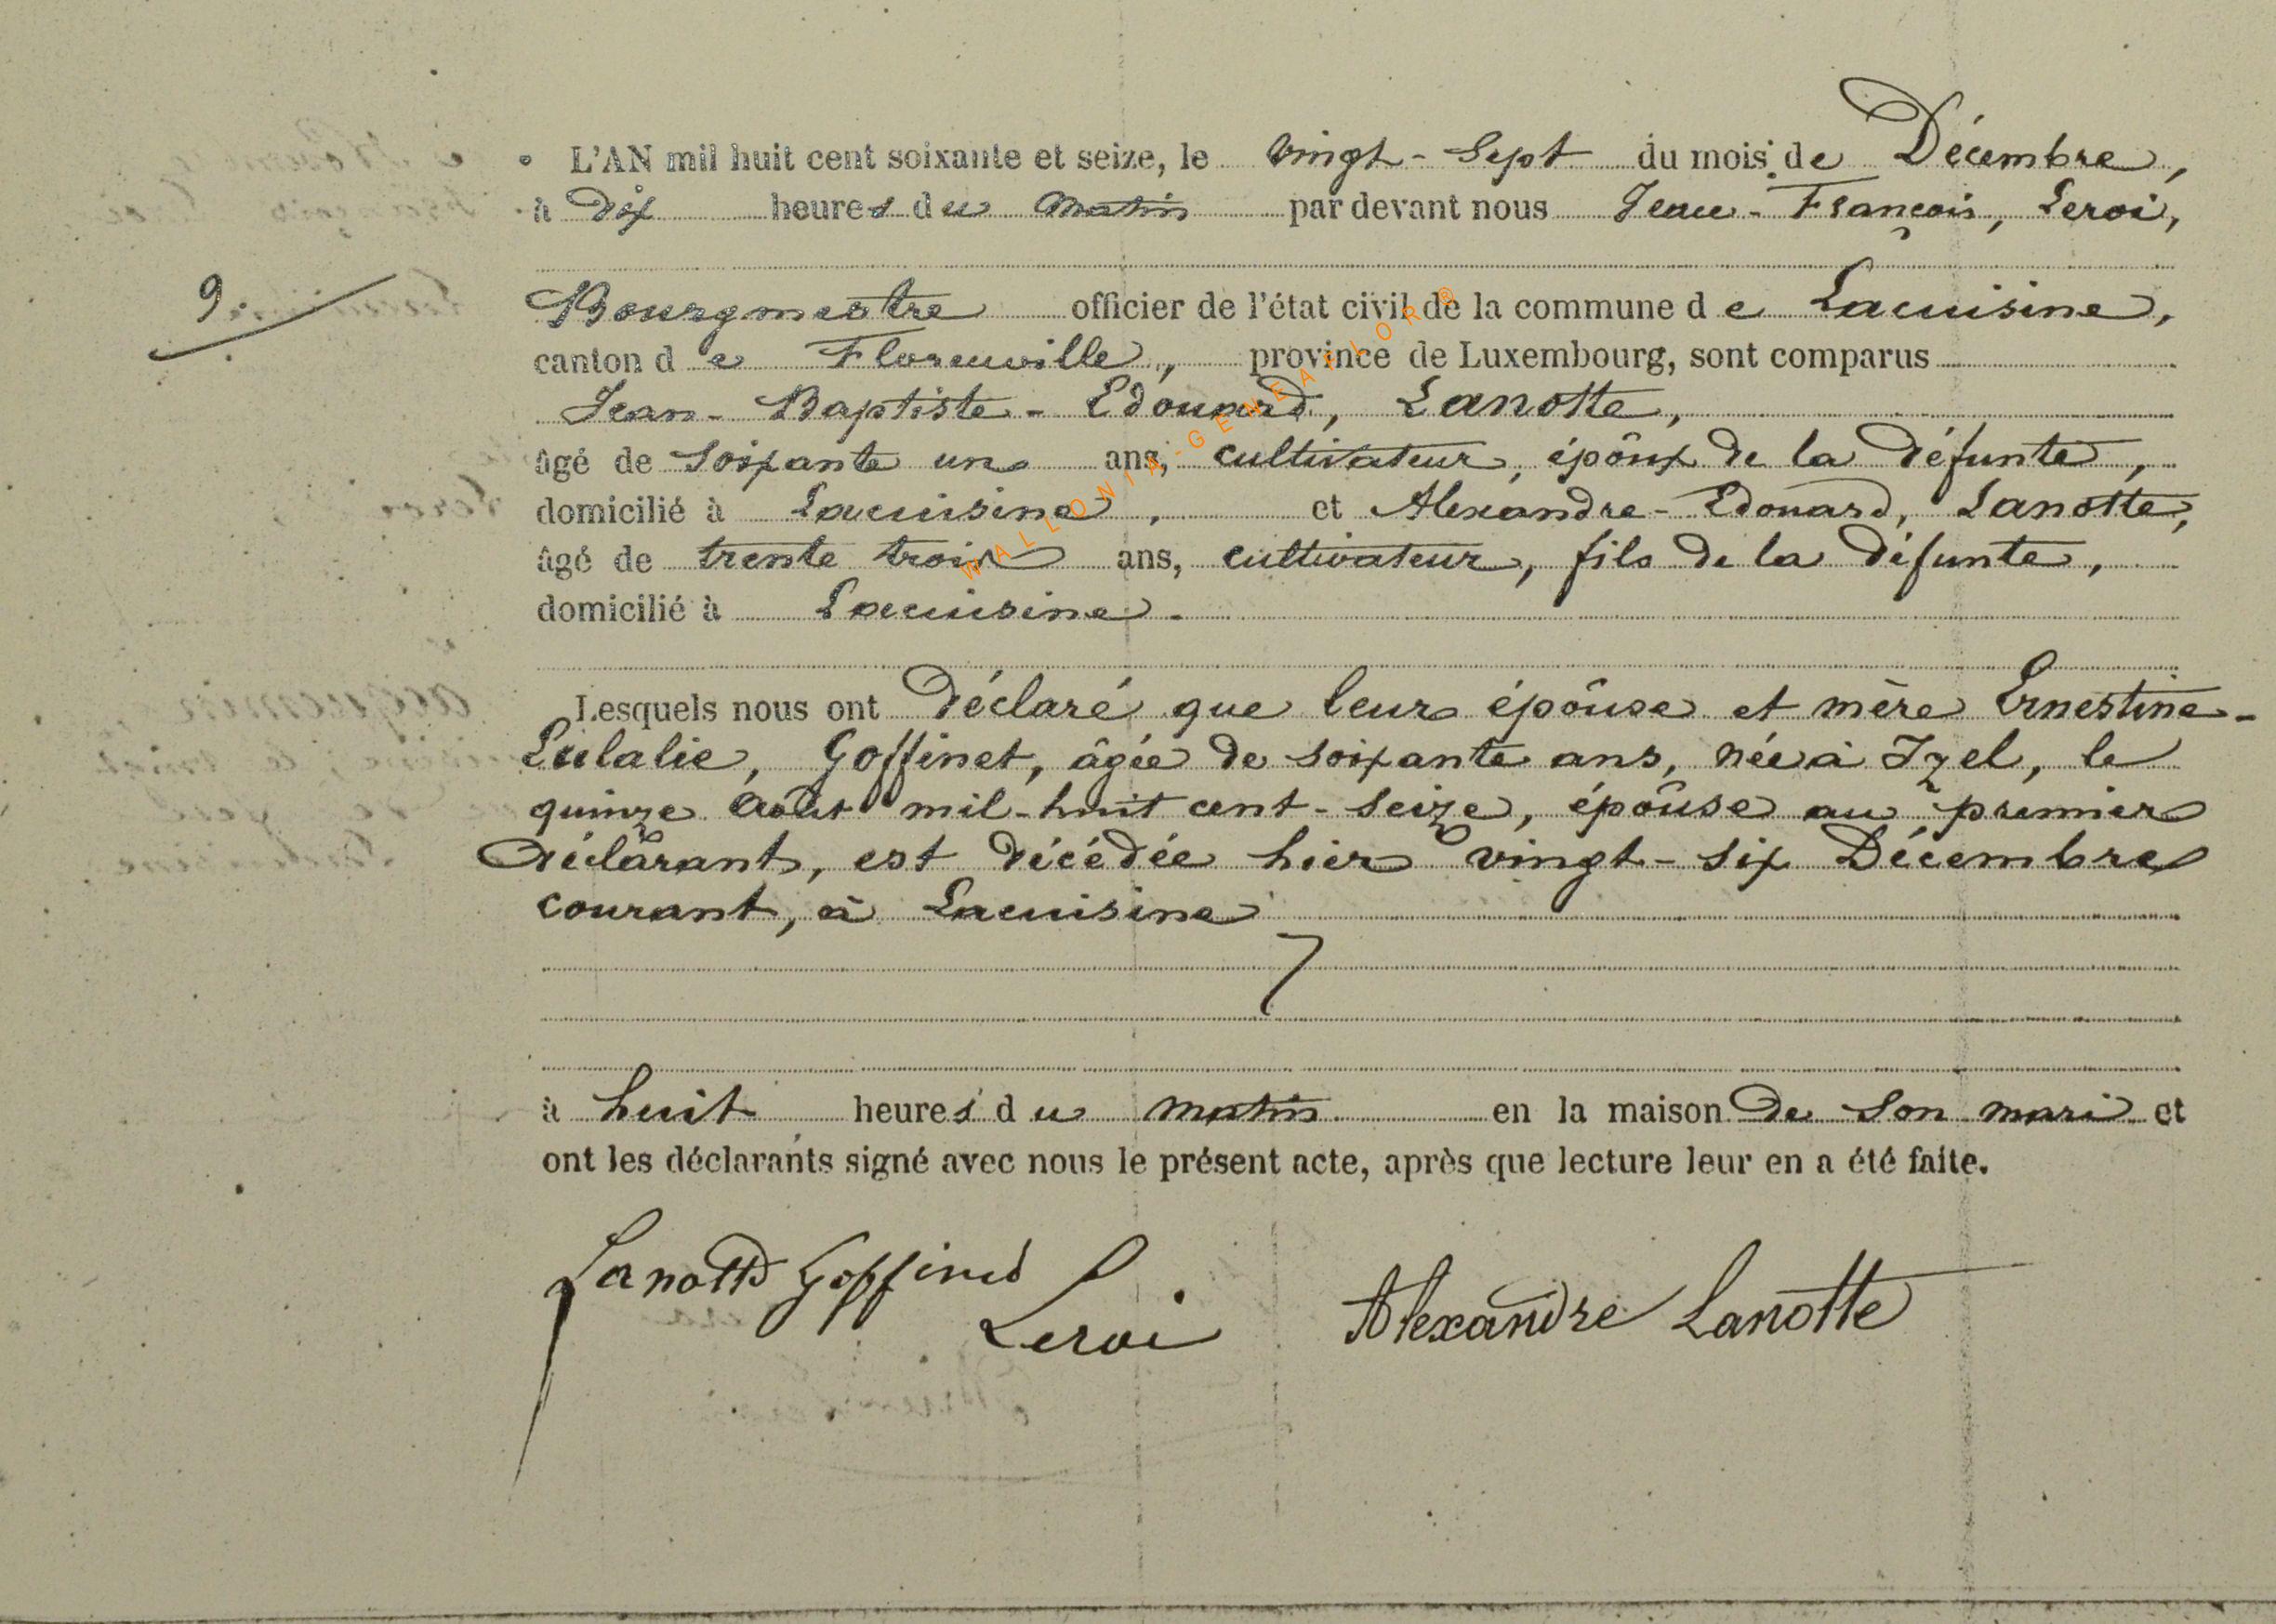 L'AN mil huit cent soixante et seize, le vingt-Sept du mois de Décembre,
à Dix heures du Matin par devant nous Jean-François, Leroi,
9.
Bourgmestre officier de l'état civil de la commune de Lacuisine,
canton de Florenville, province de Luxembourg, sont comparus
Jean-Baptiste-Edouard, Lanotte,
âgé de Soixante un ans, cultivateur, époux de la défunte,
domicilié à Lacuisine, et Alexandre-Edouard, Lanotte,
âgé de trente trois ans, cultivateur, fils de la défunte,
domicilié à Lacuisine.
WALLONIA-GENEALOR®
Lesquels nous ont Déclaré que leur épouse et mère Ernestine-
Eulalie, Goffinet, âgée de soixante ans, née à Izel, le
quinze Août mil-huit cent-seize, épouse au premier
Déclarant, est décédée hier vingt-six Décembre
courant, à Lacuisine
à huit heures du matin en la maison de son mari et
ont les déclarants signé avec nous le présent acte, après que lecture leur en a été faite.
Lanotte Goffinet
Leroi Alexandre Lanotte